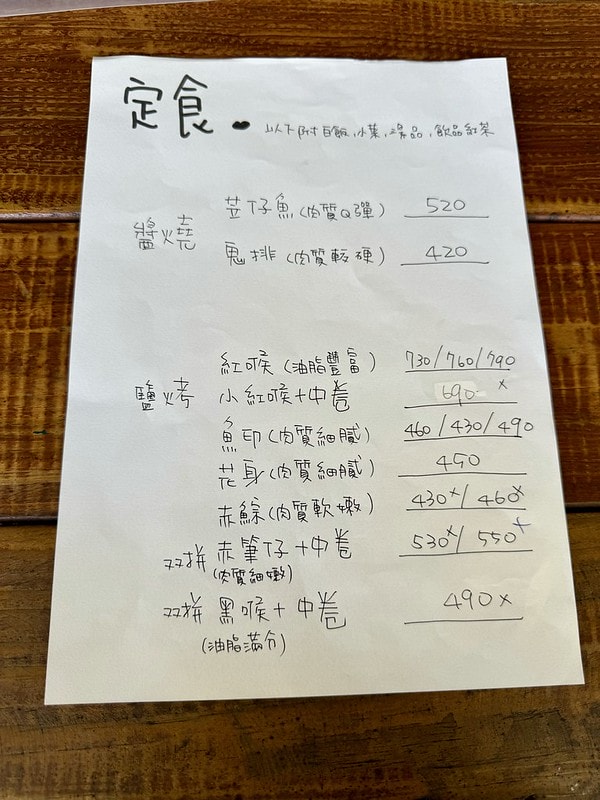 定食.
以下附白飯,小菜,湯品,飲品紅茶
醬燒
苙仔魚(肉質Q彈) 520
鬼排(肉質較硬) 420
鹽烤
紅喉(油脂豐富) 730/760/790
小紅喉+中卷 690 x
魚印(肉質細膩) 460/430/490
花身(肉質細膩) 450
赤鯮(肉質軟嫩) 430x/460x
双拼 赤筆仔+中卷 530x/550x
(肉質細嫩)
双拼 黑喉+中卷 490x
(油脂滿分)